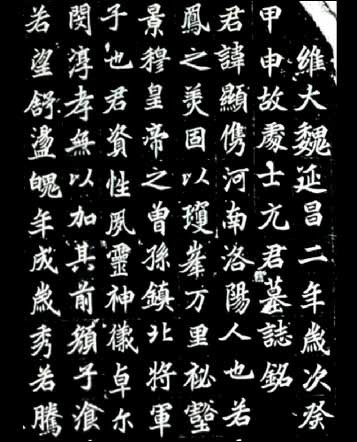 維大魏延昌二年歲次癸
甲申故處士元君墓誌銘
君諱顯儁河南洛陽人也若
鳳之美固以瓊峯万里祕壑
景穆皇帝之曾孫鎮北將軍
子也君資性夙靈神儀卓尔
閔淳孝無以加其前顏子湌
若望舒盪魄年成歲秀若騰